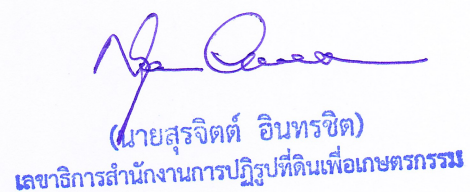 (นายสุรจิตต์ อินทรชิต)
เลขาธิการสำนักงานการปฏิรูปที่ดินเพื่อเกษตรกรรม